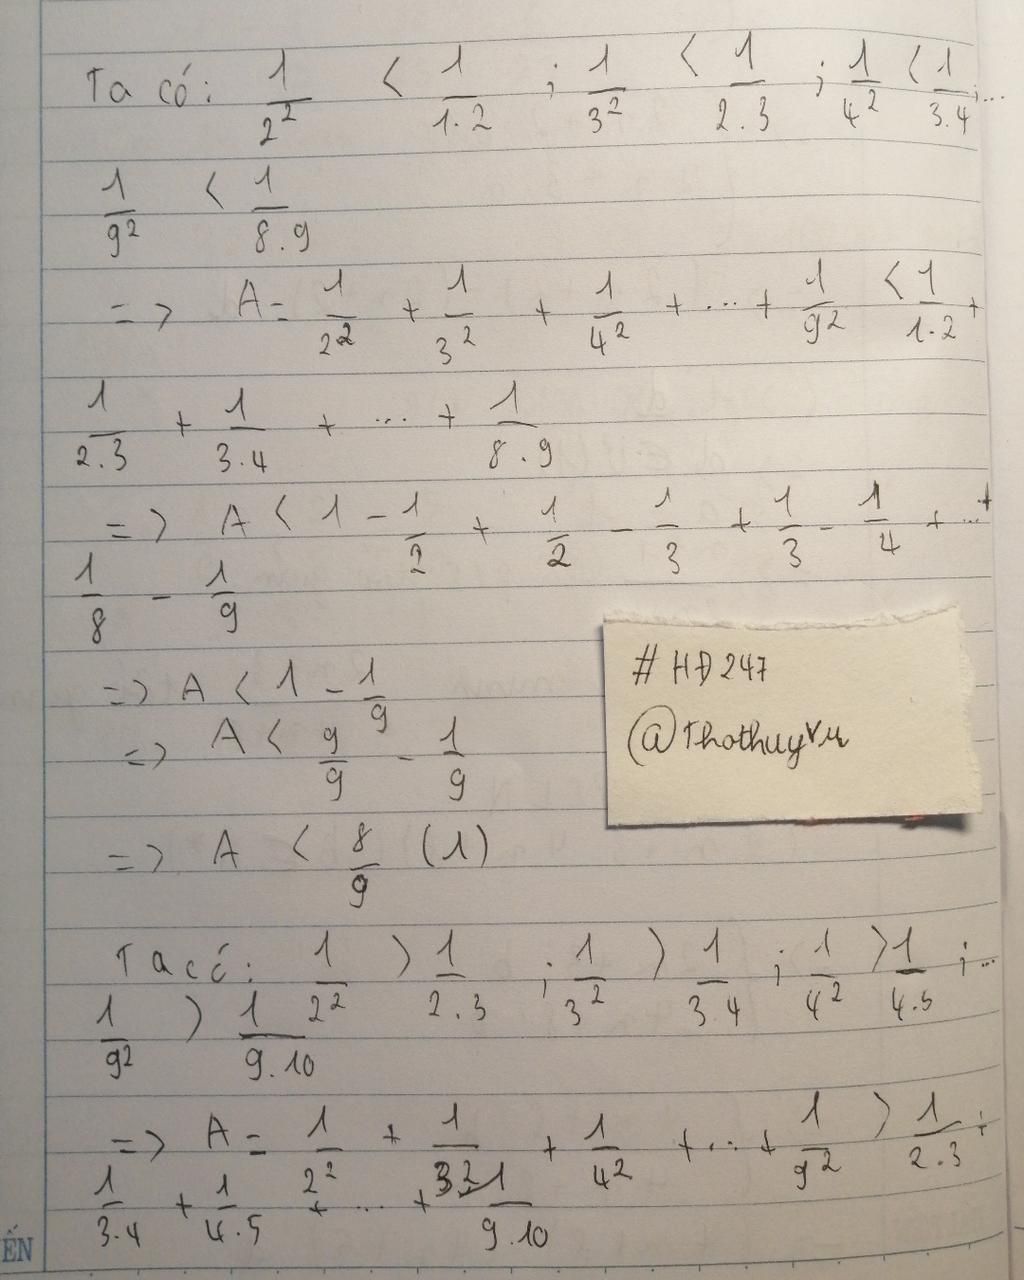 Ta có: 1/2² < 1/1.2 ; 1/3² < 1/2.3 ; 1/4² < 1/3.4 ;...
1/9² < 1/8.9
=> A = 1/2² + 1/3² + 1/4² + ... + 1/9² < 1/1.2 +
1/2.3 + 1/3.4 + ... + 1/8.9
=> A < 1 - 1/2 + 1/2 - 1/3 + 1/3 - 1/4 + ... +
1/8 - 1/9
=> A < 1 - 1/9
=> A < 9/9 - 1/9
=> A < 8/9 (1)
# HĐ247
@Thothuyvu
Ta có: 1/2² > 1/2.3 ; 1/3² > 1/3.4 ; 1/4² > 1/4.5 ;...
1/9² > 1/9.10
=> A = 1/2² + 1/3² + 1/4² + ... + 1/9² > 1/2.3 +
1/3.4 + 1/4.5 + ... + 1/9.10
ẾN